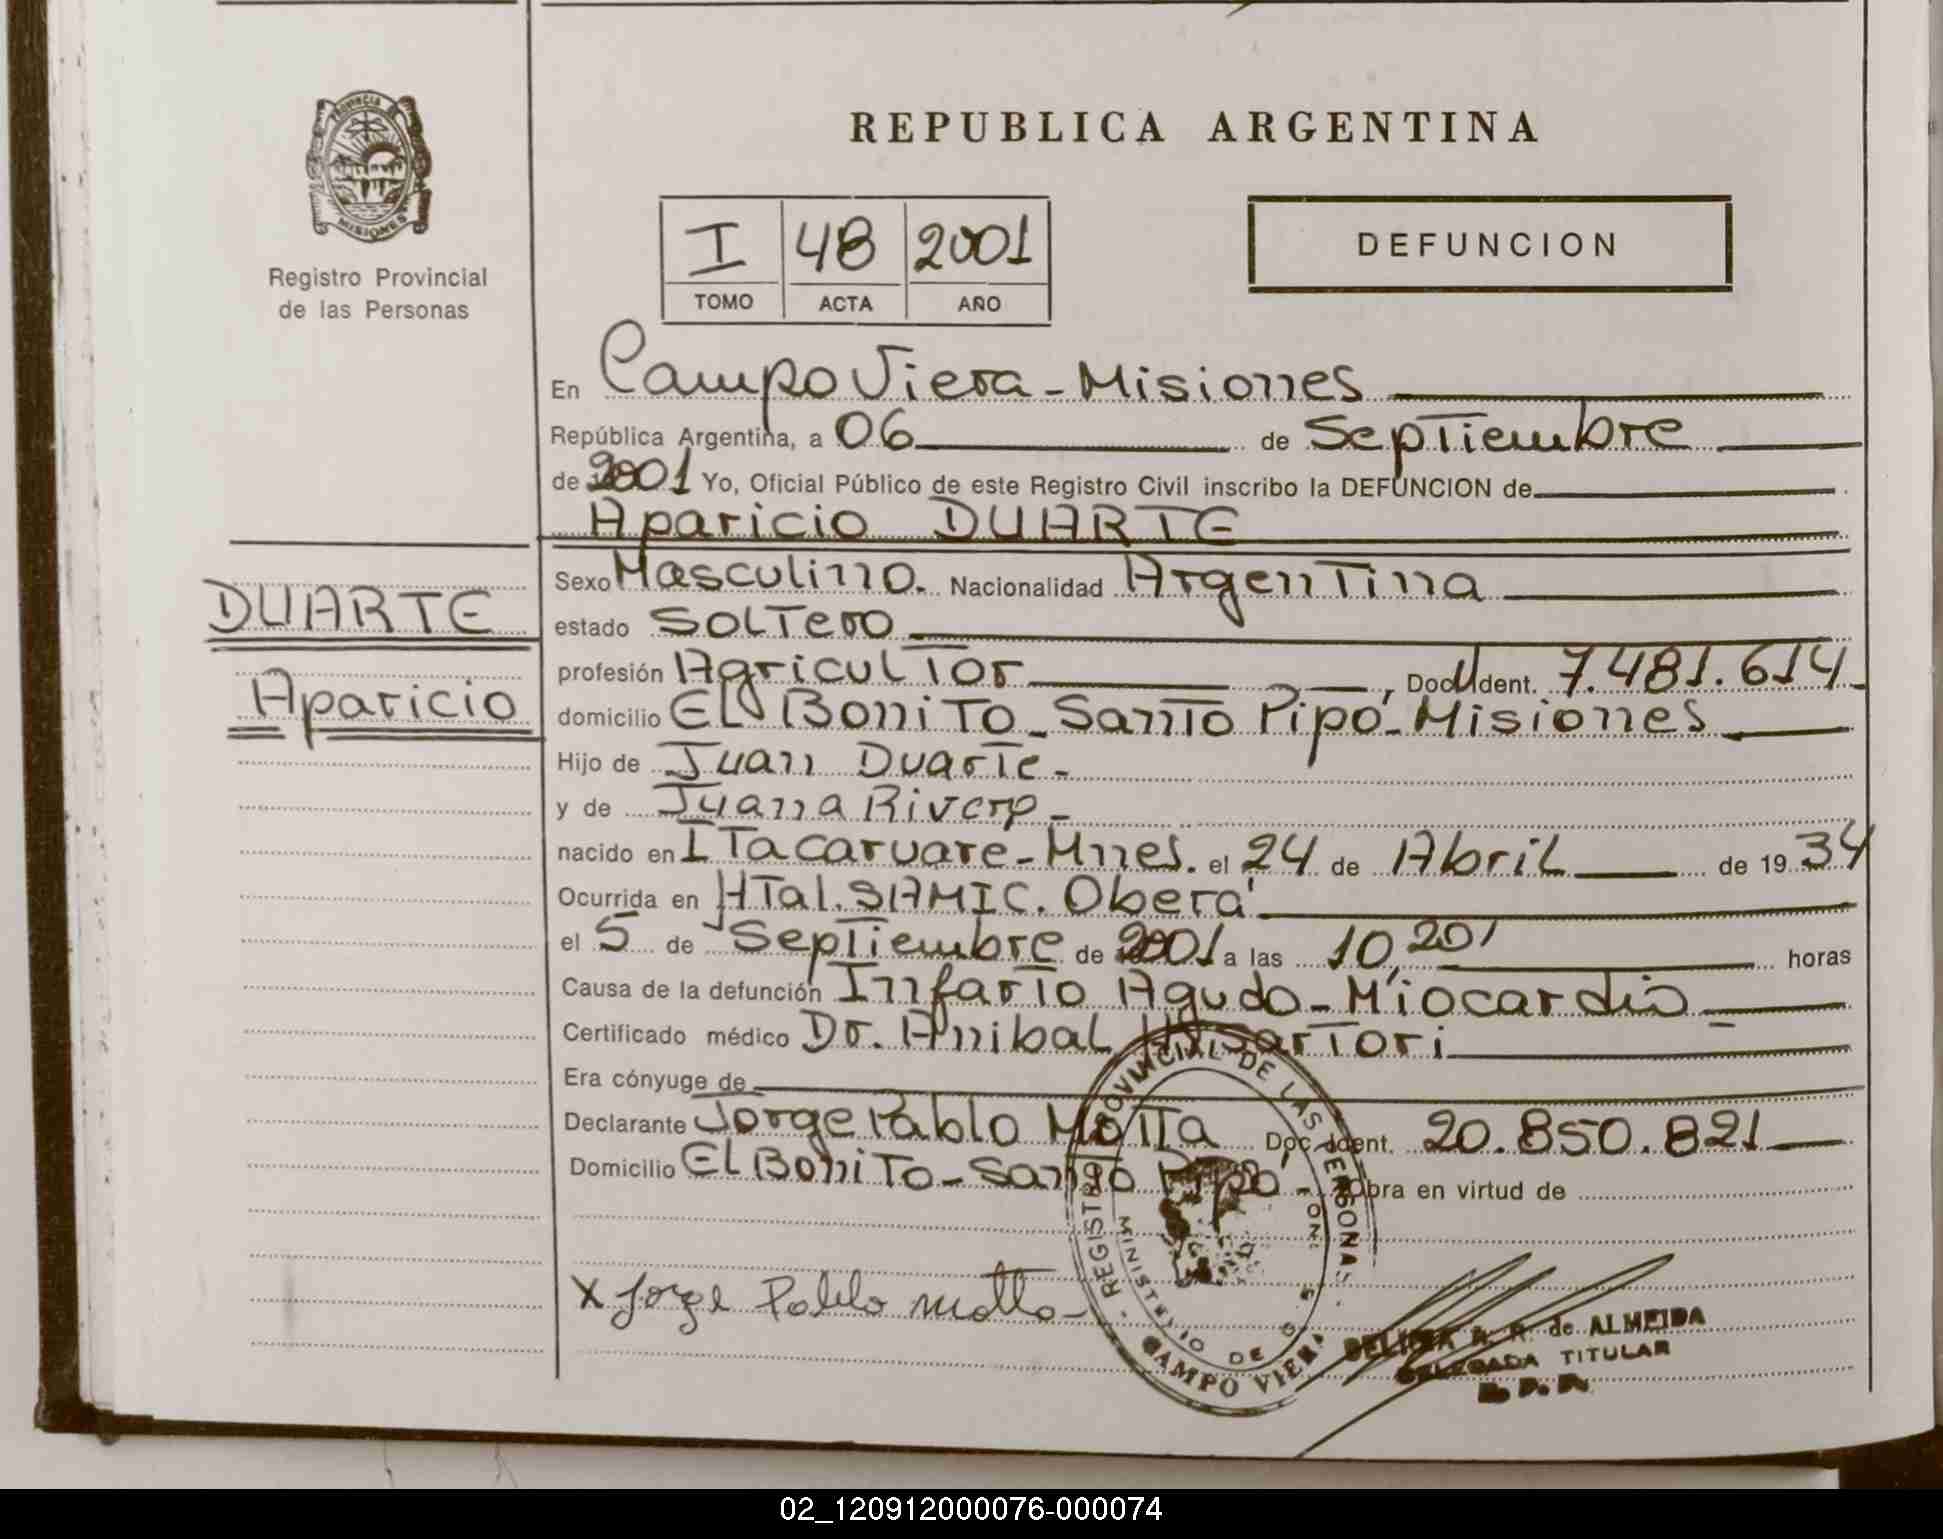 PROVINCIA
MISIONES
Registro Provincial
de las Personas
REPUBLICA ARGENTINA
I 48 2001
TOMO ACTA AÑO
DEFUNCION
En Campo Viera - Misiones
República Argentina, a 06 de Septiembre
de 2001 Yo, Oficial Público de este Registro Civil inscribo la DEFUNCION de
Aparicio DUARTE
DUARTE
Aparicio
Sexo Masculino. Nacionalidad Argentina
estado Soltero
profesión Agricultor, Doc. Ident. 7.481.614
domicilio El Bonito - Santo Pipó - Misiones
Hijo de Juan Duarte -
y de Juana Rivero -
nacido en Itacaruare - Mnes. el 24 de Abril de 1934
Ocurrida en HTal. SAMIC. Oberá
el 5 de Septiembre de 2001 a las 10,20' horas
Causa de la defunción Infarto Agudo - Miocardio
Certificado médico Dr. Anibal Sartori
Era cónyuge de
Declarante Jorge Pablo Motta Doc. Ident. 20.850.821
Domicilio El Bonito - Santo Pipó - Obra en virtud de
X Jorge Pablo Motta -
REGISTRO PROVINCIAL DE LAS PERSONAS
MINISTERIO DE G
CAMPO VIERA
R. de ALMEIDA
DELEGADA TITULAR
02_120912000076-000074